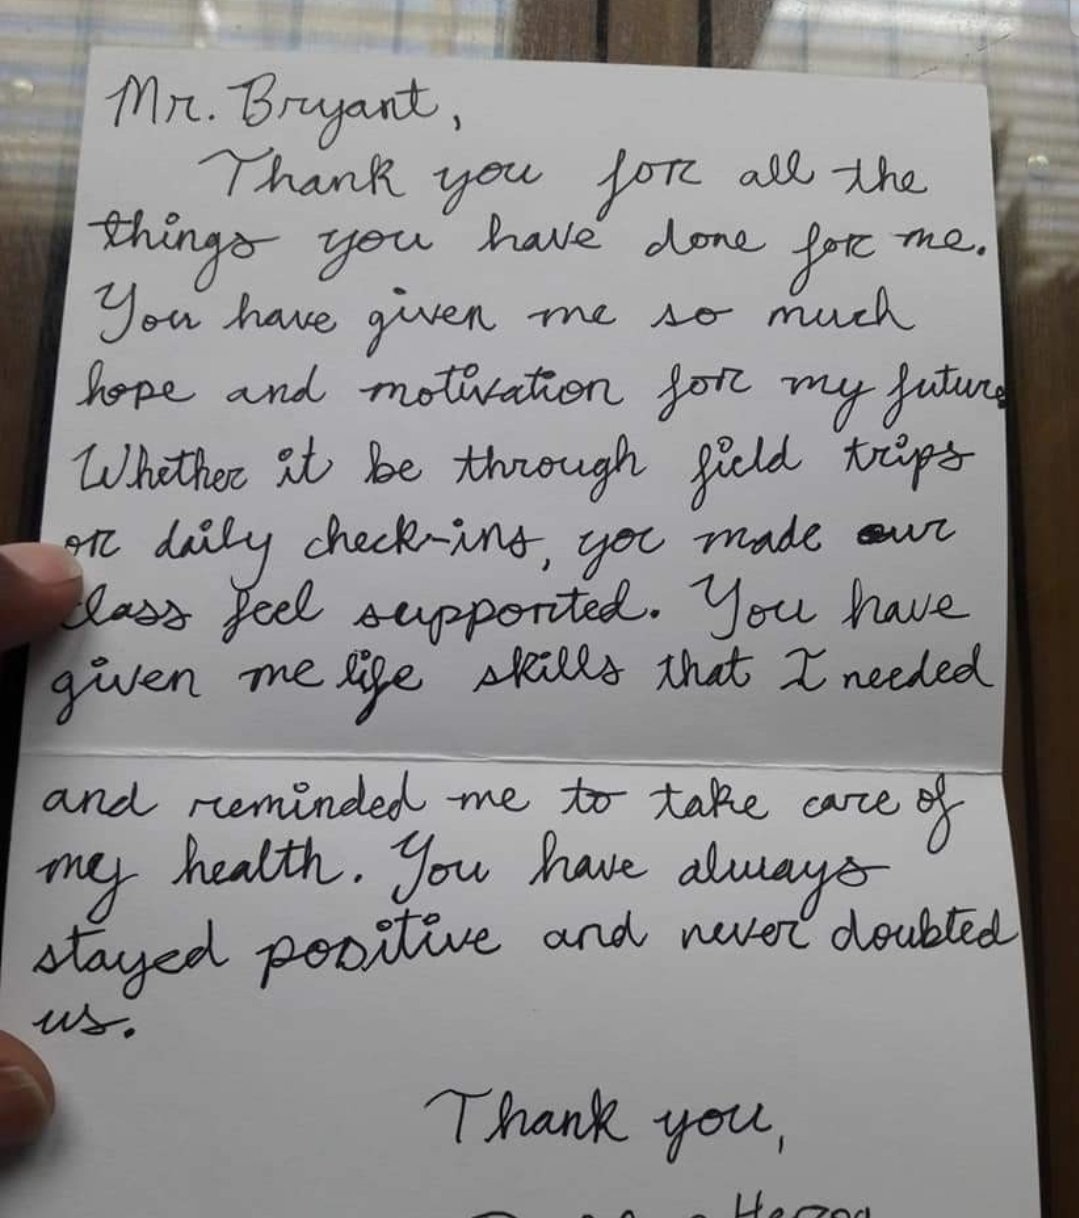 Mr. Bryant,
Thank you for all the
things you have done for me.
You have given me so much
hope and motivation for my future
Whether it be through field trips
or daily check-ins, you made our
class feel supported. You have
given me life skills that I needed
and reminded me to take care of
my health. You have always
stayed positive and never doubted
us.
Thank you,
Herzog